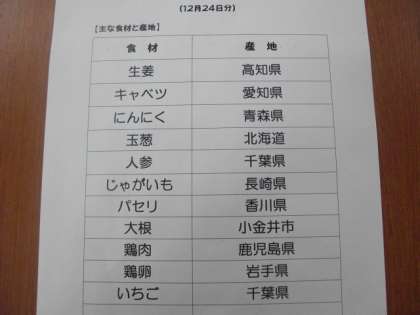 (12月24日分)
【主な食材と産地】
食 材 産 地
生姜 高知県
キャベツ 愛知県
にんにく 青森県
玉葱 北海道
人参 千葉県
じゃがいも 長崎県
パセリ 香川県
大根 小金井市
鶏肉 鹿児島県
鶏卵 岩手県
いちご 千葉県